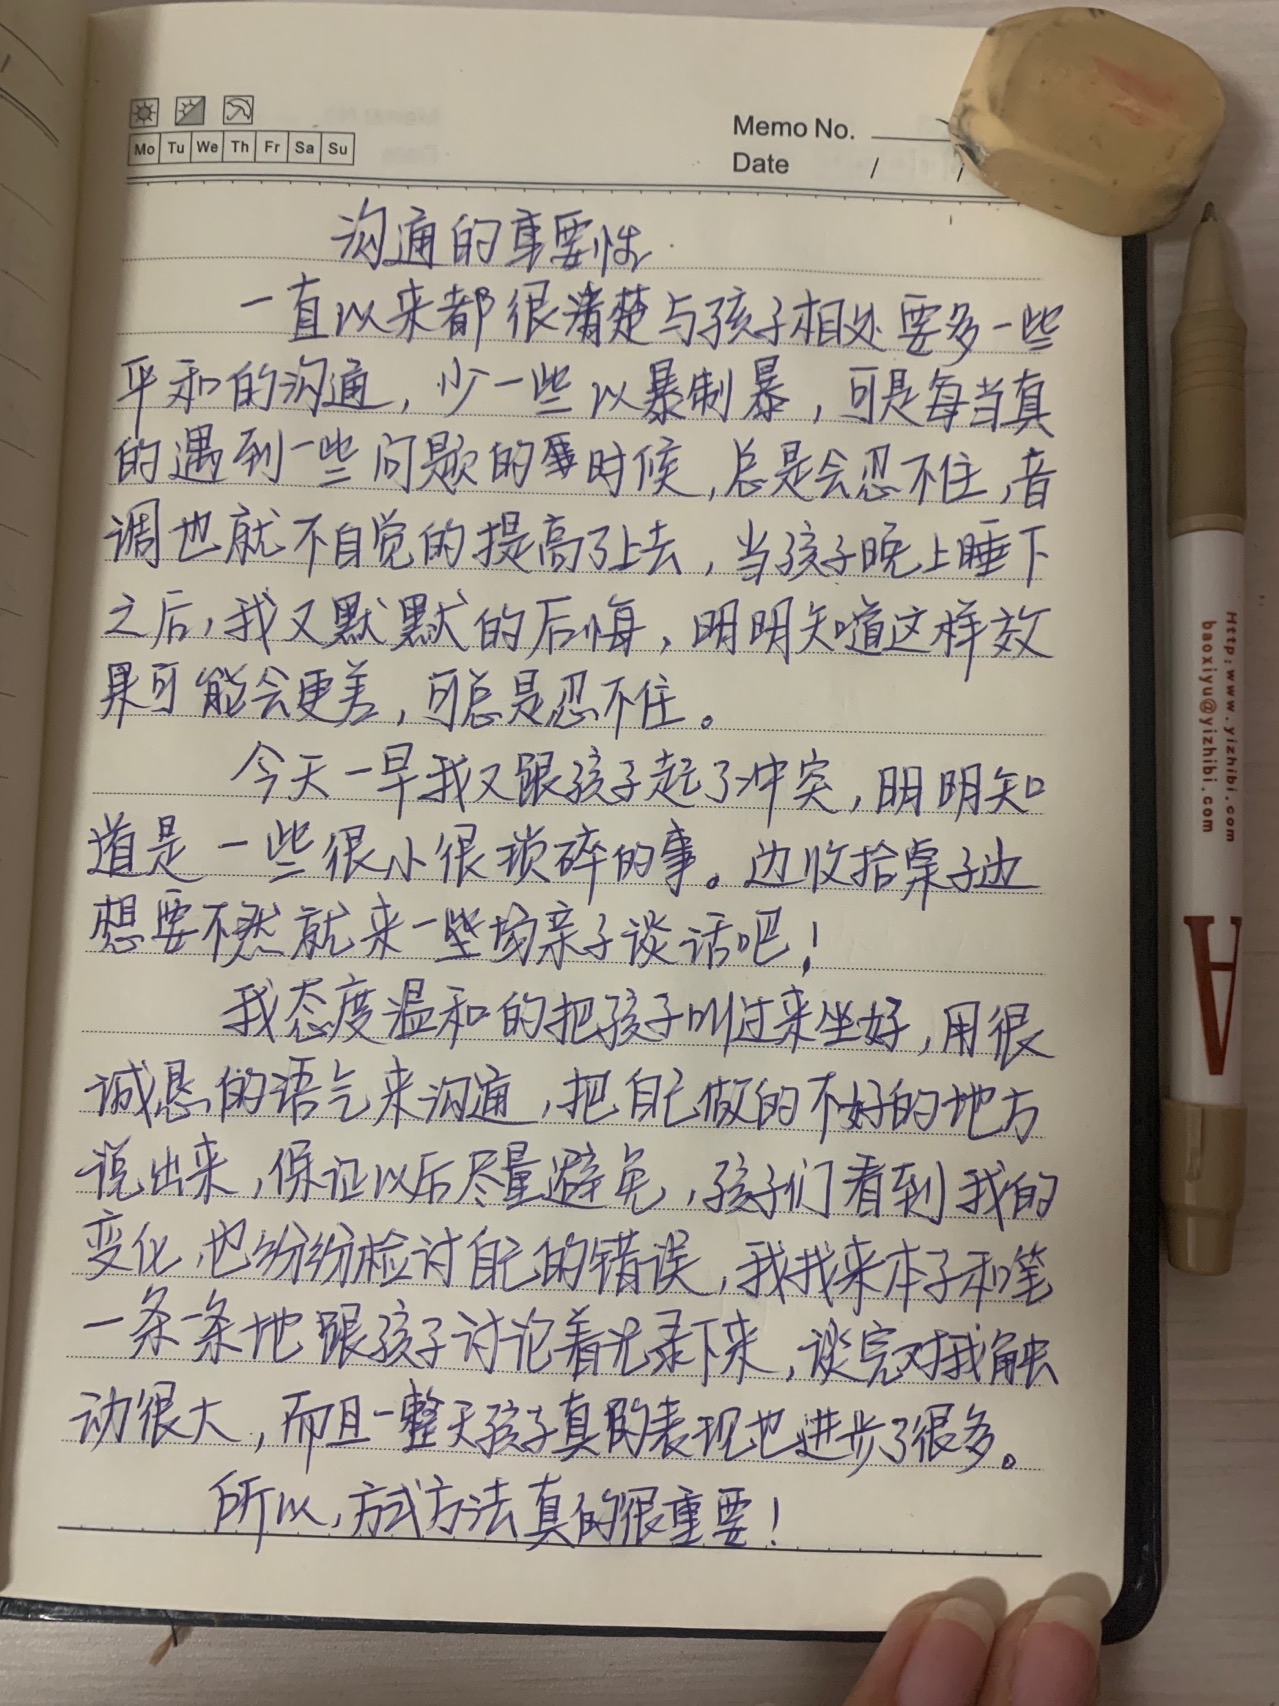 Mo Tu We Th Fr Sa Su
Memo No.
Date / /
沟通的重要性
一直以来都很清楚与孩子相处要多一些
平和的沟通，少一些以暴制暴，可是每当真
的遇到一些问题的时候，总是会忍不住，音
调也就不自觉的提高了上去，当孩子晚上睡下
之后，我又默默的后悔，明明知道这样效
果可能会更差，可总是忍不住。
今天一早我又跟孩子起了冲突，明明知
道是一些很小很琐碎的事。边收拾桌子边
想要不然就来一场亲子谈话吧！
我态度温和的把孩子叫过来坐好，用很
诚恳的语气来沟通，把自己做的不好的地方
说出来，保证以后尽量避免，孩子们看到我的
变化，也纷纷检讨自己的错误，我找来本子和笔
一条一条地跟孩子讨论着记录下来，谈完对我触
动很大，而且一整天孩子真的表现也进步了很多。
所以，方式方法真的很重要！
Http:www.yizhibi.com
baoxiyu@yizhibi.com
A